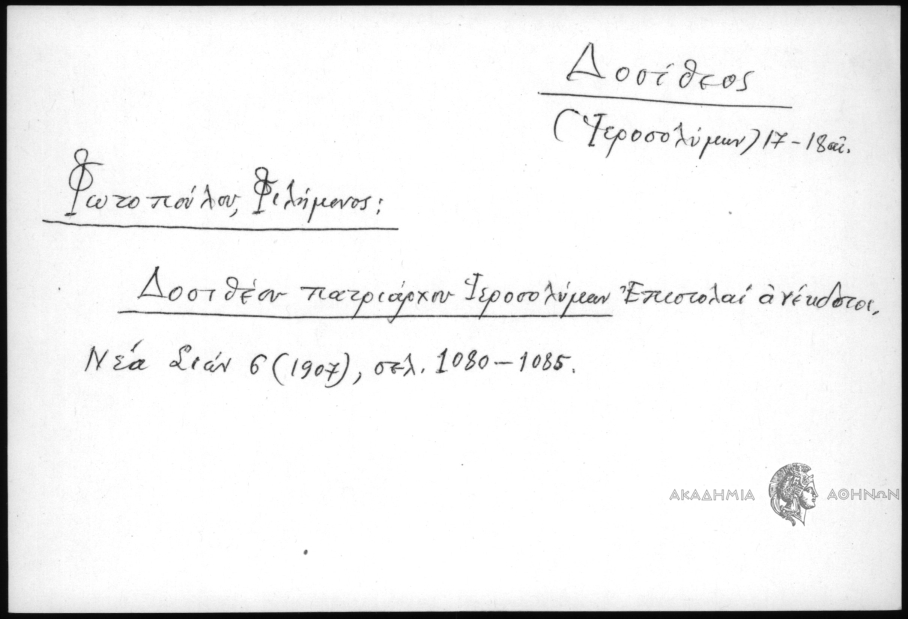 Δοσίθεος
(Ἱεροσολύμων) 17-18 αἰ.
Φωτοπούλου, Φιλήμονος:
Δοσιθέου πατριάρχου Ἱεροσολύμων Ἐπιστολαί ἀνέκδοτοι,
Νέα Σιών 6 (1907), σελ. 1080-1085.
ΑΚΑΔΗΜΙΑ ΑΘΗΝΩΝ